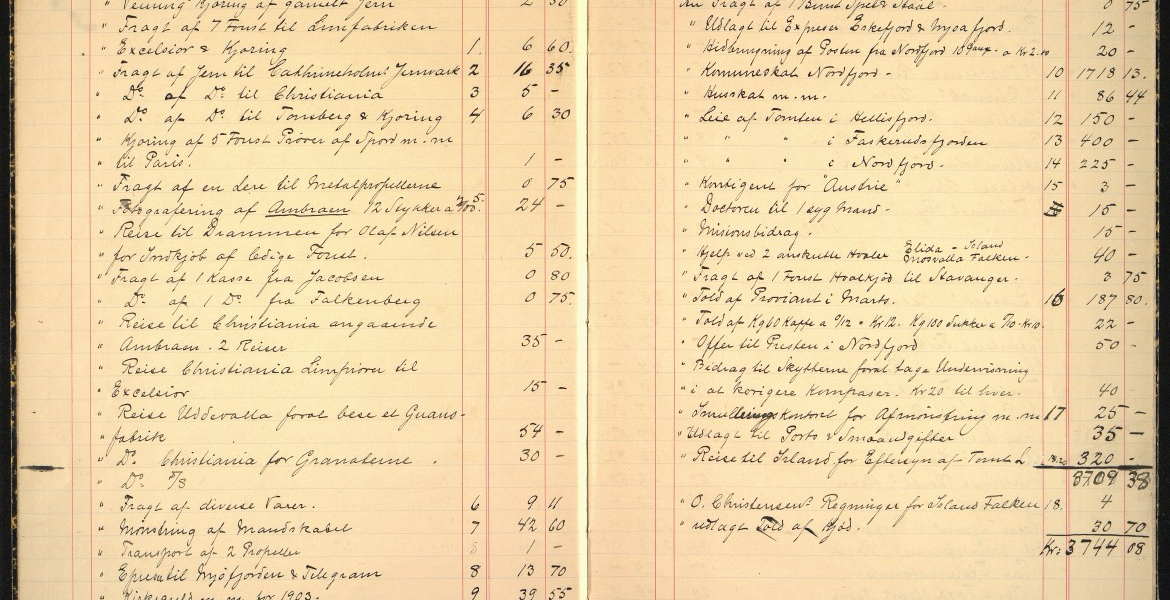 " Kjøring af gamelt Jern 2 50
" Fragt af 7 Forst til Limfabriken
" Excelsior & Kjøring 1. 6 60.
" Fragt af Jern til Cathrineholms Jernværk 2 16 35
" Do. af Do. til Christiania 3 5 -
" Do. af Do. til Tønsberg & Kjøring 4 6 30
" Kjøring af 5 Forst Prøver af m. m
" til Paris. 1 -
" Fragt af en Dere til Metalpropellerne 0 75
" Fotografering af Ambraen 12 Stykker a 24 -
" Reise til Drammen for Olaf Nilsen
" for Indkjøb af ledige Forst. 5 50.
" Fragt af 1 Kasse fra Jacobsen 0 80
" Do. af 1 Do. fra Falkenberg 0 75.
" Reise til Christiania angaaende
" Ambraen. 2 Reiser 35 -
" Reise Christiania Limprøver til
" Excelsior 15 -
" Reise Uddevalla forat bese et Guano-
" fabrik 54 -
" Do. Christiania for Granaterne. 30 -
" Do.
" Fragt af diverse Varer. 6 9 11
" Mønstring af Mandskabet 7 42 60
" Transport af 2 Propeller 8 1 -
" til Mjöfjorden & Telegram 8 13 70
" m. m. for 1903. 9 39 55
Fragt af 1 0 75
" Udlagt til Expresser Eskefjord & Mjøsafjord. 12 -
" Hidbringning af Posten fra Nordfjord 10 Gang a Kr 2.00 20 -
" Kommuneskat Nordfjord - 10 1718 13.
" Husskat m. m. 11 86 44
" Leie af Tomten i Hellisfjord. 12 150 -
" " " i Faskerudsfjorden 13 400 -
" " " i Nordfjord. 14 225 -
" Kontigent for "Austrie" 15 3 -
" Doctoren til 1 syg Mand. 15 -
" Misionsbidrag. 15 -
" Hjelp ved 2 anskutte Hvaler Elida - Island Falken. 40 -
" Fragt af 1 Forst Hvalkjød til Stavanger. 3 75
" Told af Proviant i Marts. 16 187 80.
" Told af Kg 60 Kaffe a 0/12 = Kr 12. Kg 100 Sukker a 7/10. Kr 10. 22 -
" Offer til Presten i Nordfjord 50 -
" Bidrag til Skytterne forat tage Undervisning
" i at korigere Kompaser. Kr 20 til hver. 40 -
" kontoret for Afmønstring m. m 17 25 -
" Udlagt til Porto & Smaaudgifter 35 -
" Reise til Island for Eftersyn af Tomt 320 -
8709 38
" O. Christensens Regninger for Island Falken 18. 4
" udlagt Told af Kjød. 30 70
Kr: 3744 08